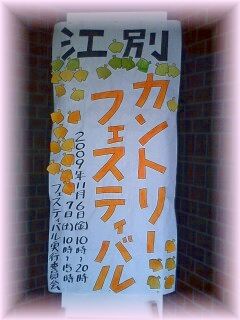 江別
カントリー
フェスティバル
2009年11月6日(金)10時~20時
7日(土)10時~15時
フェスティバル実行委員会